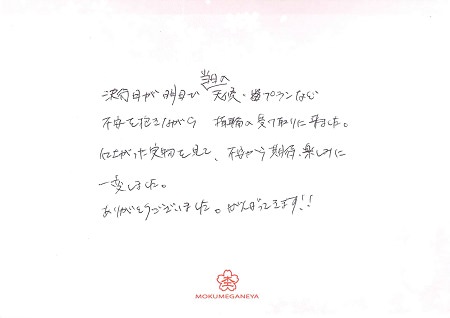 当日の
決行日が明日で天候・プランなど
不安を抱きながら 指輪の受け取りに来ました。
仕上がった実物を見て、不安から期待、楽しみに
一変しました。
ありがとうございました。がんばってきます!!
MOKUMEGANEYA